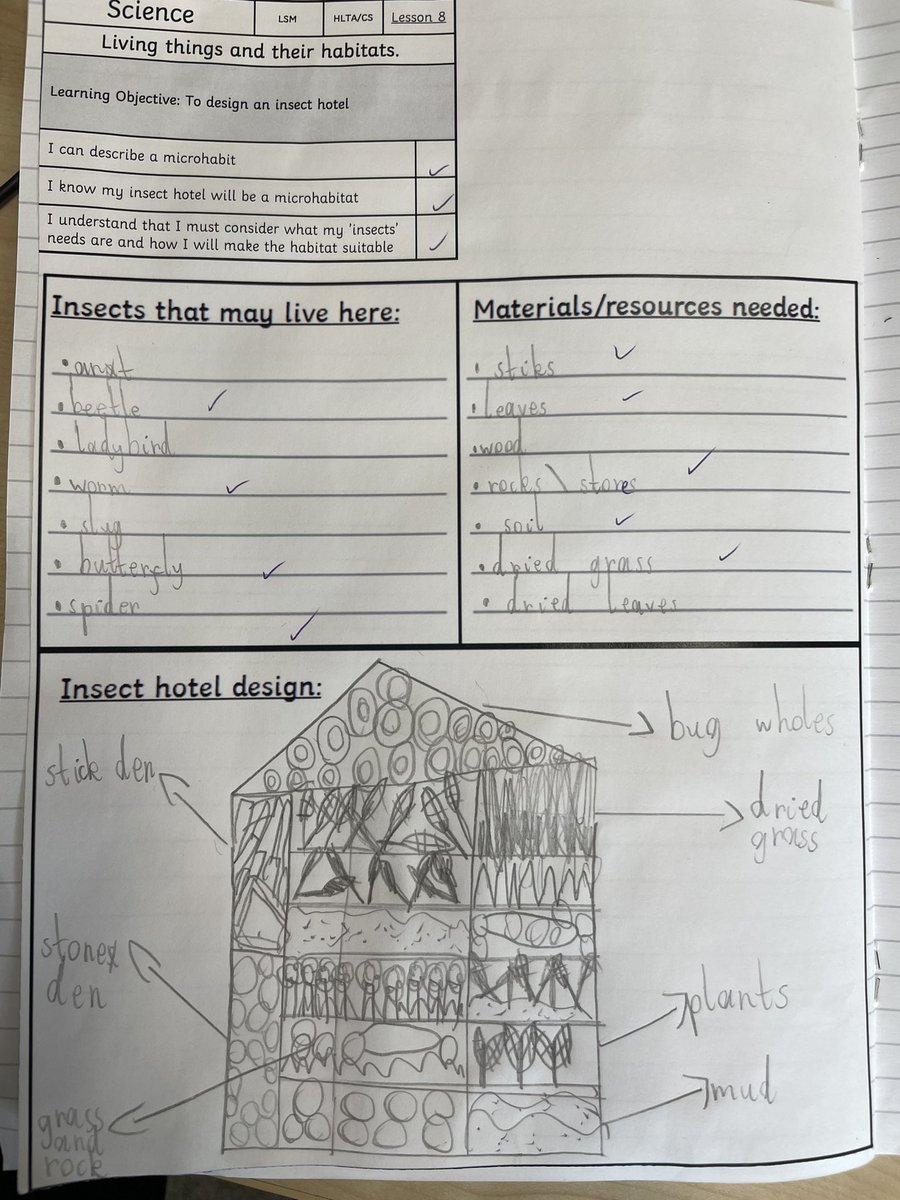 Science LSM HLTA/CS Lesson 8
Living things and their habitats.
Learning Objective: To design an insect hotel
I can describe a microhabit
I know my insect hotel will be a microhabitat
I understand that I must consider what my 'insects'
needs are and how I will make the habitat suitable
Insects that may live here:
• beetle
• ladybird
• worm
• slug
• butterfly
• spider
Materials/resources needed:
• stiks
• leaves
• wood
• rocks \ stones
• soil
• dried grass
• dried leaves
Insect hotel design:
bug wholes
stick den
dried
grass
stones
den
plants
mud
grass
and
rock